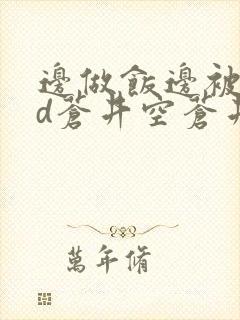 邊做飯邊被
d蒼井空蒼井
萬年脩